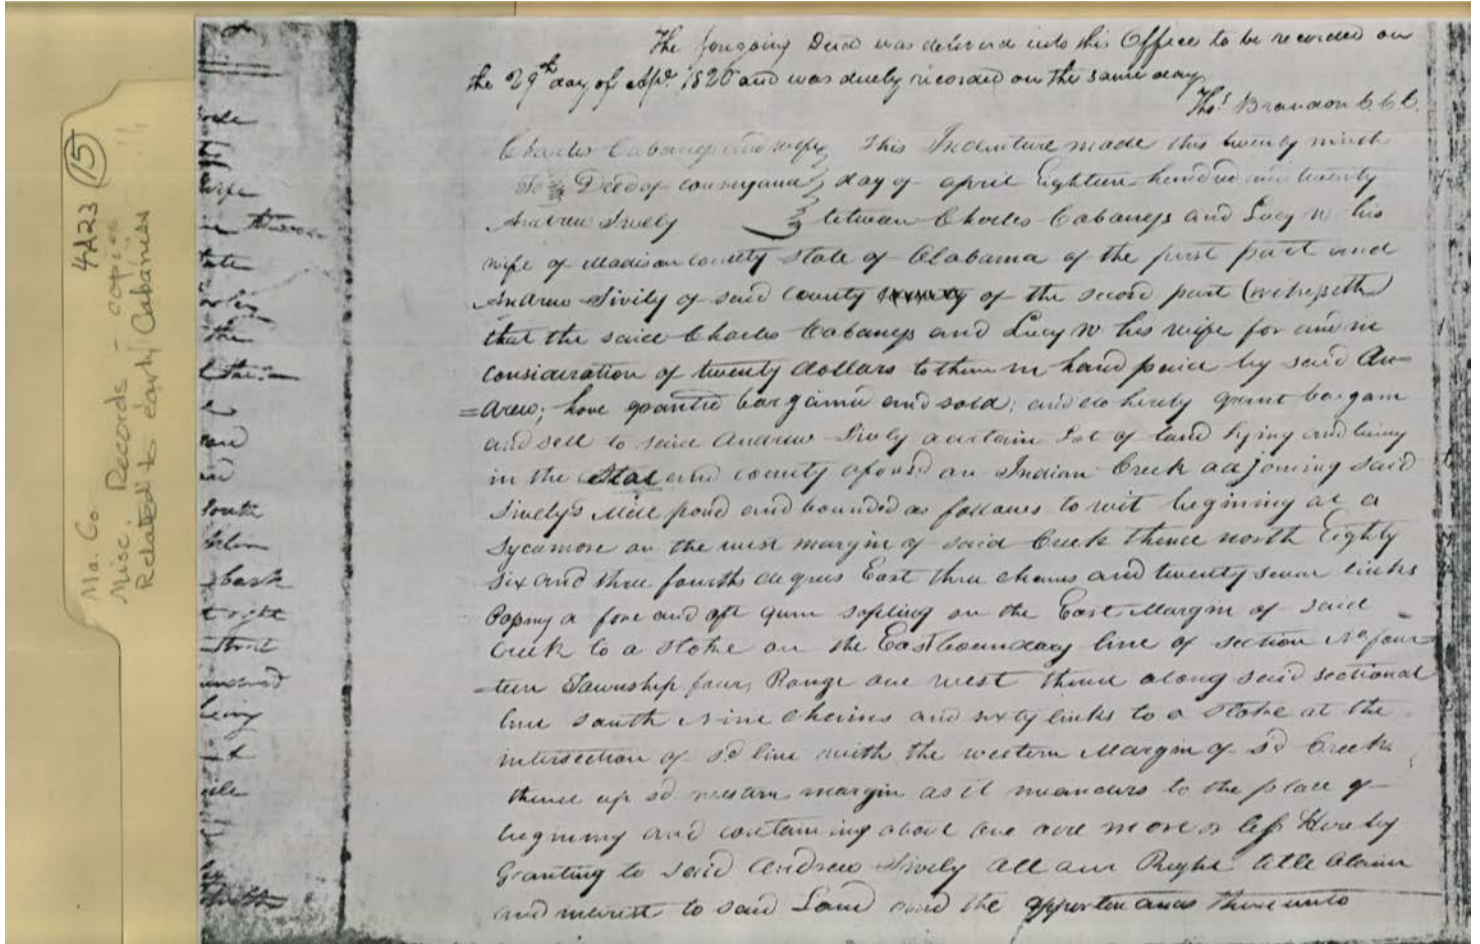 4A23 (15)
Ma. Co.
Misc. Records - copies
Related to early Cabaniss
The foregoing Deed was delivered into this Office to be recorded on
the 29th day of Apl. 1820 and was duely recorded on the same day
Thos. Brandon C.C.C.
Charles Cabaness and wife This Indenture made this twenty ninth
To Deed of conveyance day of april Eighteen hundred and twenty
Andrew Sively between Charles Cabaness and Lucy W his
wife of Madison county State of Alabama of the first part and
Andrew Sively of said County of the second part (witnesseth)
that the said Charles Cabaness and Lucy W his wife for and in
consideration of twenty dollars to them in hand paid by said An=
=drew; have granted bargained and sold; and do hereby grant bargain
and sell to said Andrew Sively a certain Lot of land lying and being
in the State and county aforsd on Indian Creek adjoining said
Sively's Mill pond and bounded as follows to wit begining at a
Sycamore on the west margin of said Creek thence north Eighty
six and three fourths degrees East three chains and twenty seven links
Passing a fore and aft gum sapling on the East Margin of said
Creek to a Stake on the East boundary line of section No four=
=teen Township four, Range one west thence along said sectional
line south Nine Chains and sixty links to a Stake at the
intersection of sd line with the western Margin of sd Creek
thence up sd western margin as it meanders to the place of
begining and containing about one acre more or less Hereby
Granting to said Andrew Sively all our Right title Claim
and interest to said Land and the appertenances thereunto
wife
tate
the
South
back
right
being